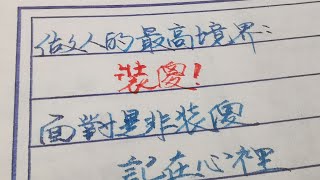 做人的最高境界：
裝傻！
面對是非裝傻
記在心裡